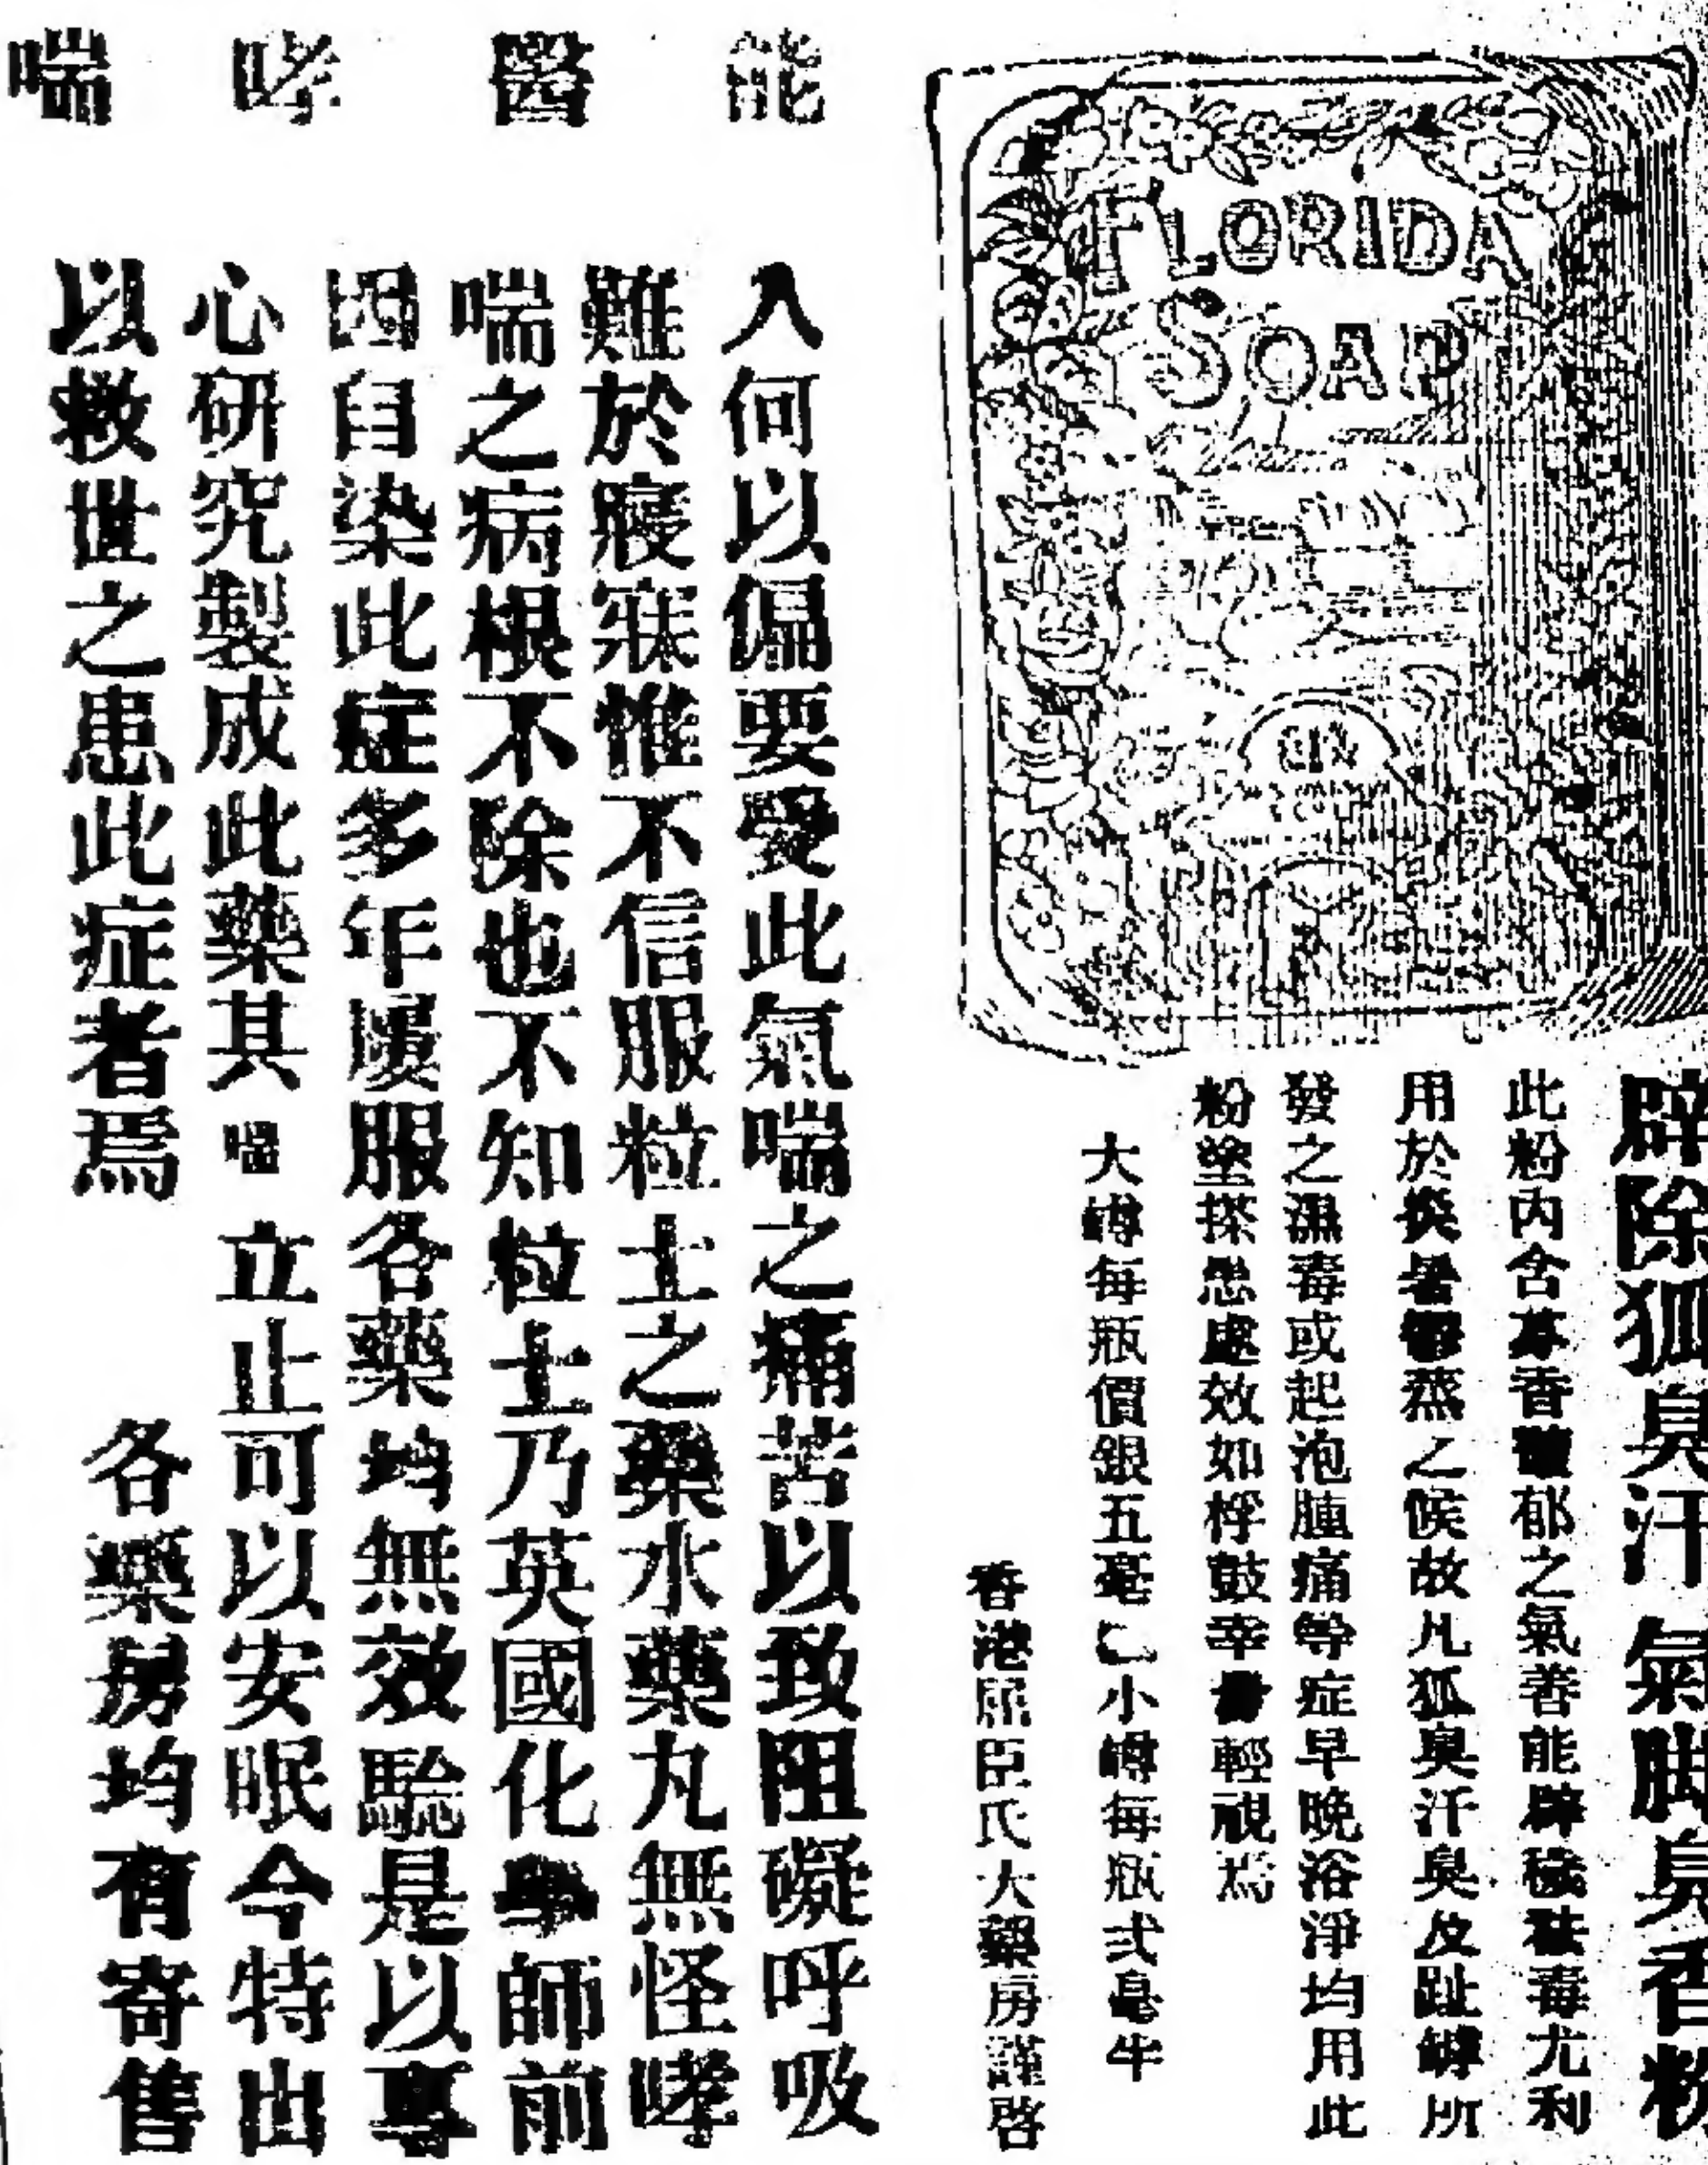 FLORIDA
SOAP
辟除狐臭汗氣脚臭香粉
此粉內含䓁香馥郁之氣善能辟穢祛毒尤利
用於炎暑鬱蒸之候故凡狐臭汗臭及趾罅所
發之濕毒或起泡腫痛等症早晚浴淨均用此
粉塗搽患處效如桴鼓幸毋輕視焉
大罇每瓶價銀五毫 小罇每瓶弍毫半
香港屈臣氏大藥房謹啓
能醫哮喘
人何以偏要受此氣喘之痛苦以致阻礙呼吸
難於寢寐惟不信服粒士之藥水藥丸無怪哮
喘之病根不除也不知粒士乃英國化學師前
因自染此症多年屢服各藥均無效驗是以專
心研究製成此藥其喘立止可以安眠今特出
以救世之患此症者焉
各藥房均有寄售